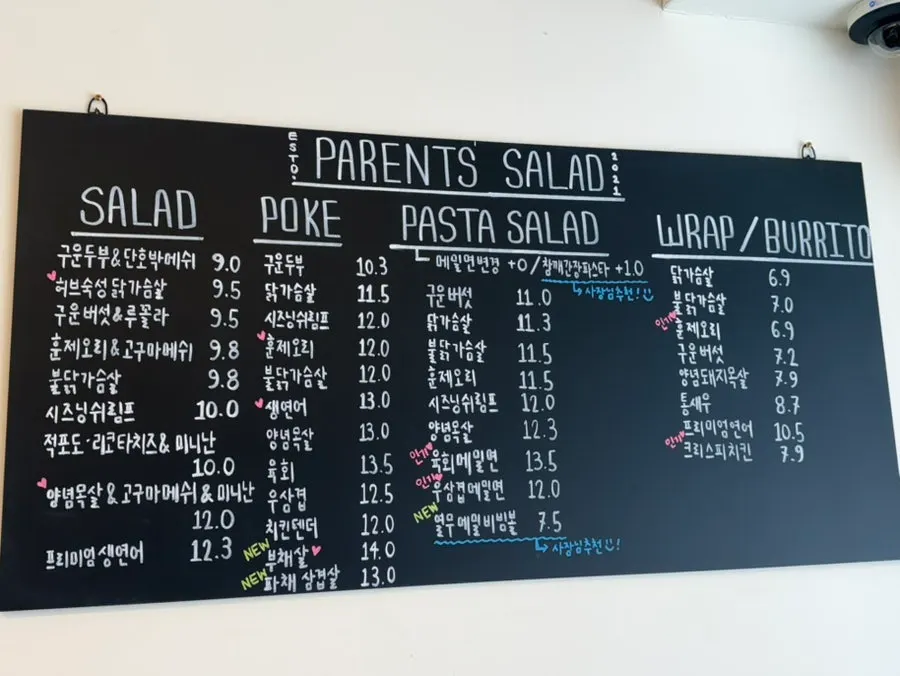 ESTD. PARENTS' SALAD 2021
SALAD
구운두부&단호박메쉬 9.0
허브숙성 닭가슴살 9.5
구운버섯&루꼴라 9.5
훈제오리&고구마메쉬 9.8
불닭가슴살 9.8
시즈닝쉬림프 10.0
적포도·리코타치즈&미니난
10.0
양념목살&고구마메쉬&미니난
12.0
프리미엄생연어 12.3
POKE
구운두부 10.3
닭가슴살 11.5
시즈닝쉬림프 12.0
훈제오리 12.0
불닭가슴살 12.0
생연어 13.0
양념목살 13.0
육회 13.5
우삼겹 12.5
치킨텐더 12.0
NEW 부채살 14.0
NEW 파채 삼겹살 13.0
PASTA SALAD
메밀면변경 +0/참깨간장파스타 +1.0
사장님추천!
구운버섯 11.0
닭가슴살 11.3
불닭가슴살 11.5
훈제오리 11.5
시즈닝쉬림프 12.0
양념목살 12.3
인기 육회메밀면 13.5
인기 우삼겹메밀면 12.0
NEW 열무메밀비빔볼 7.5
사장님추천!
WRAP/BURRITO
닭가슴살 6.9
불닭가슴살 7.0
인기 훈제오리 6.9
구운버섯 7.2
양념돼지목살 7.9
통새우 8.7
프리미엄연어 10.5
인기 크리스피치킨 7.9